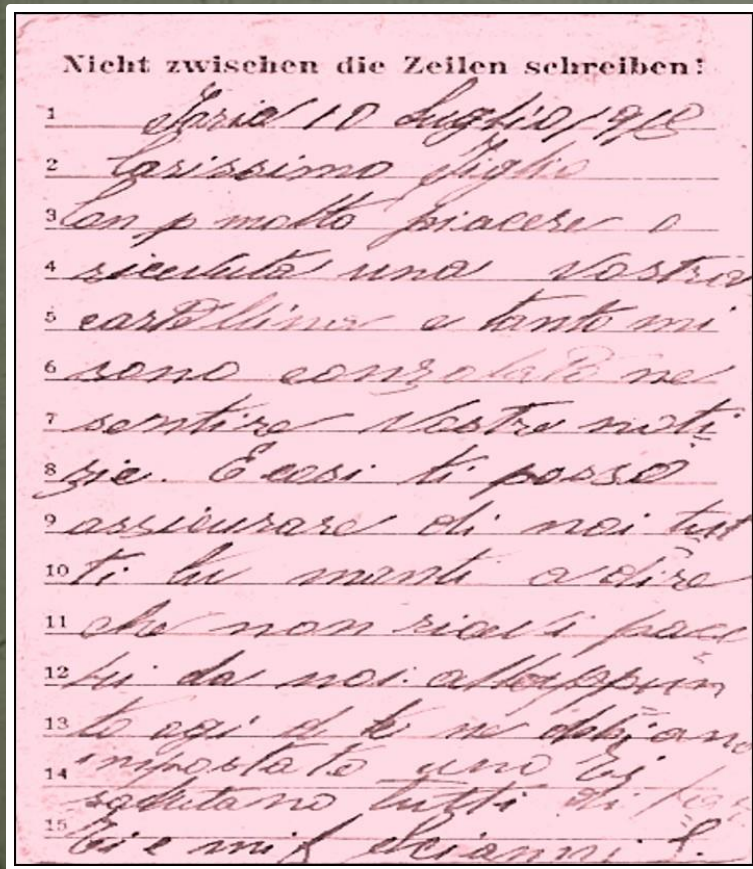 Nicht zwischen die Zeilen schreiben!
1 10 Luglio 1918
2 Carissimo Figlio
3 Con p molto piacere o
4 riceuuta una Vostra
5 cartollina e tanto mi
6 sono consolato ne
7 sentire Vostre noti
8 zie. E cosi ti posso
9 assicurare di noi tut
10 ti tu manti a dire
11 che non ricevi pacc
12 hi da noi. allo appun
13 to ogi a te ne abbiamo
14 impostato uno Ti
salutano tutti di
15 Ti e mi f Scianni